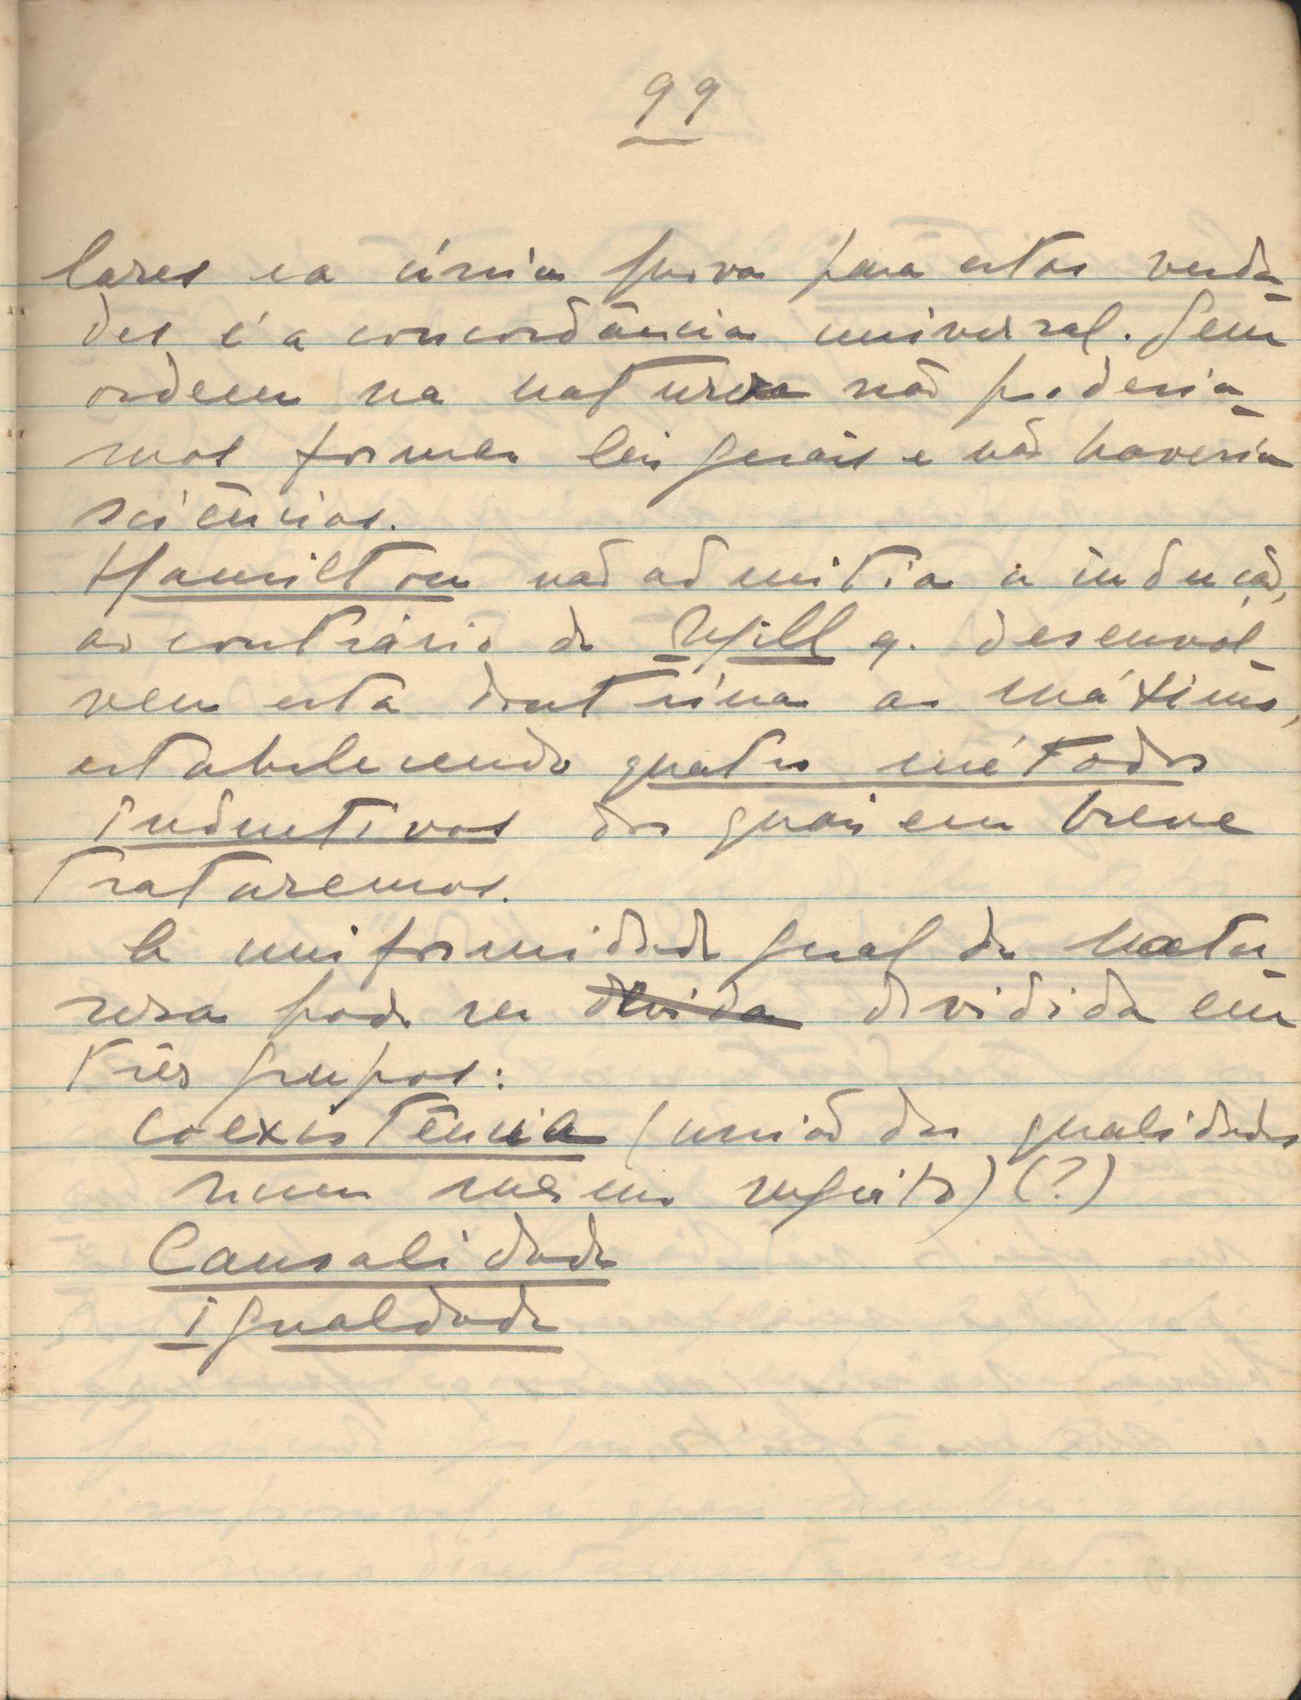 99
lares e a única prova para estas verda-
des é a concordância universal. Sem
ordem na natureza não poderia-
mos formar leis gerais e não haveria
sciências.
Hamilton não admitia a indução,
ao contrário de Mill q. desenvol-
veu esta doutrina ao máximo,
estabelecendo quatro métodos
indutivos dos quais em breve
trataremos.
A uniformidade geral da natu-
reza pode ser divida dividida em
três grupos:
Coexistência (união das qualidades
num mesmo sujeito) (?)
Causalidade
Igualdade